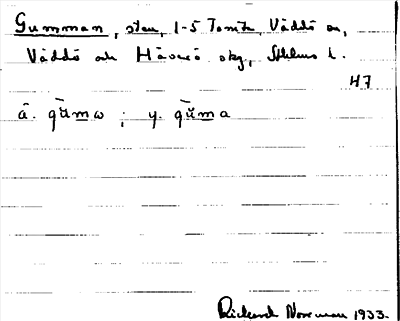 Gumman, sten, 1-5 Tomta, Väddö sn,
Väddö och Häverö skg, Sthlms l.
47
ä. gūmω ; y. gūma
Rickard Noreman 1933.